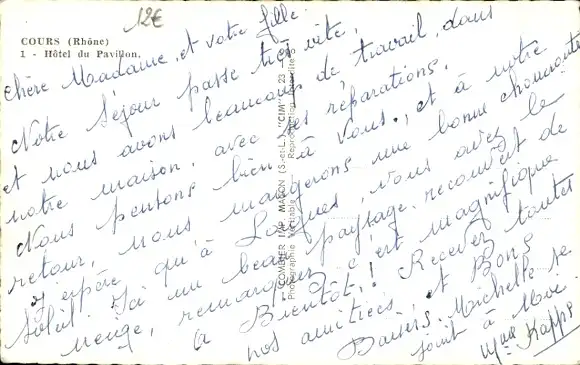 12€
COURS (Rhône)
1 - Hôtel du Pavillon.
Chère Madame, et votre fille.
Notre séjour passe très vite,
et nous avons beaucoup de travail, dans
notre maison, avec les réparations.
Nous pensons bien à vous, et à notre
retour, nous mangerons une bonne choucroute
J'espère qu'à Langues, vous avez le
soleil. Ici un beau paysage recouvert de
neige, remarquez c'est magnifique
A Bientôt! Recevez toutes
nos amitiées, et Bons
Baisers. Michelle se
joint à Moi.
Mme Kapps
COMBIER IMP. MACON (S.-et-L.) "CIM"
Photographie véritable
Reproduction interdite